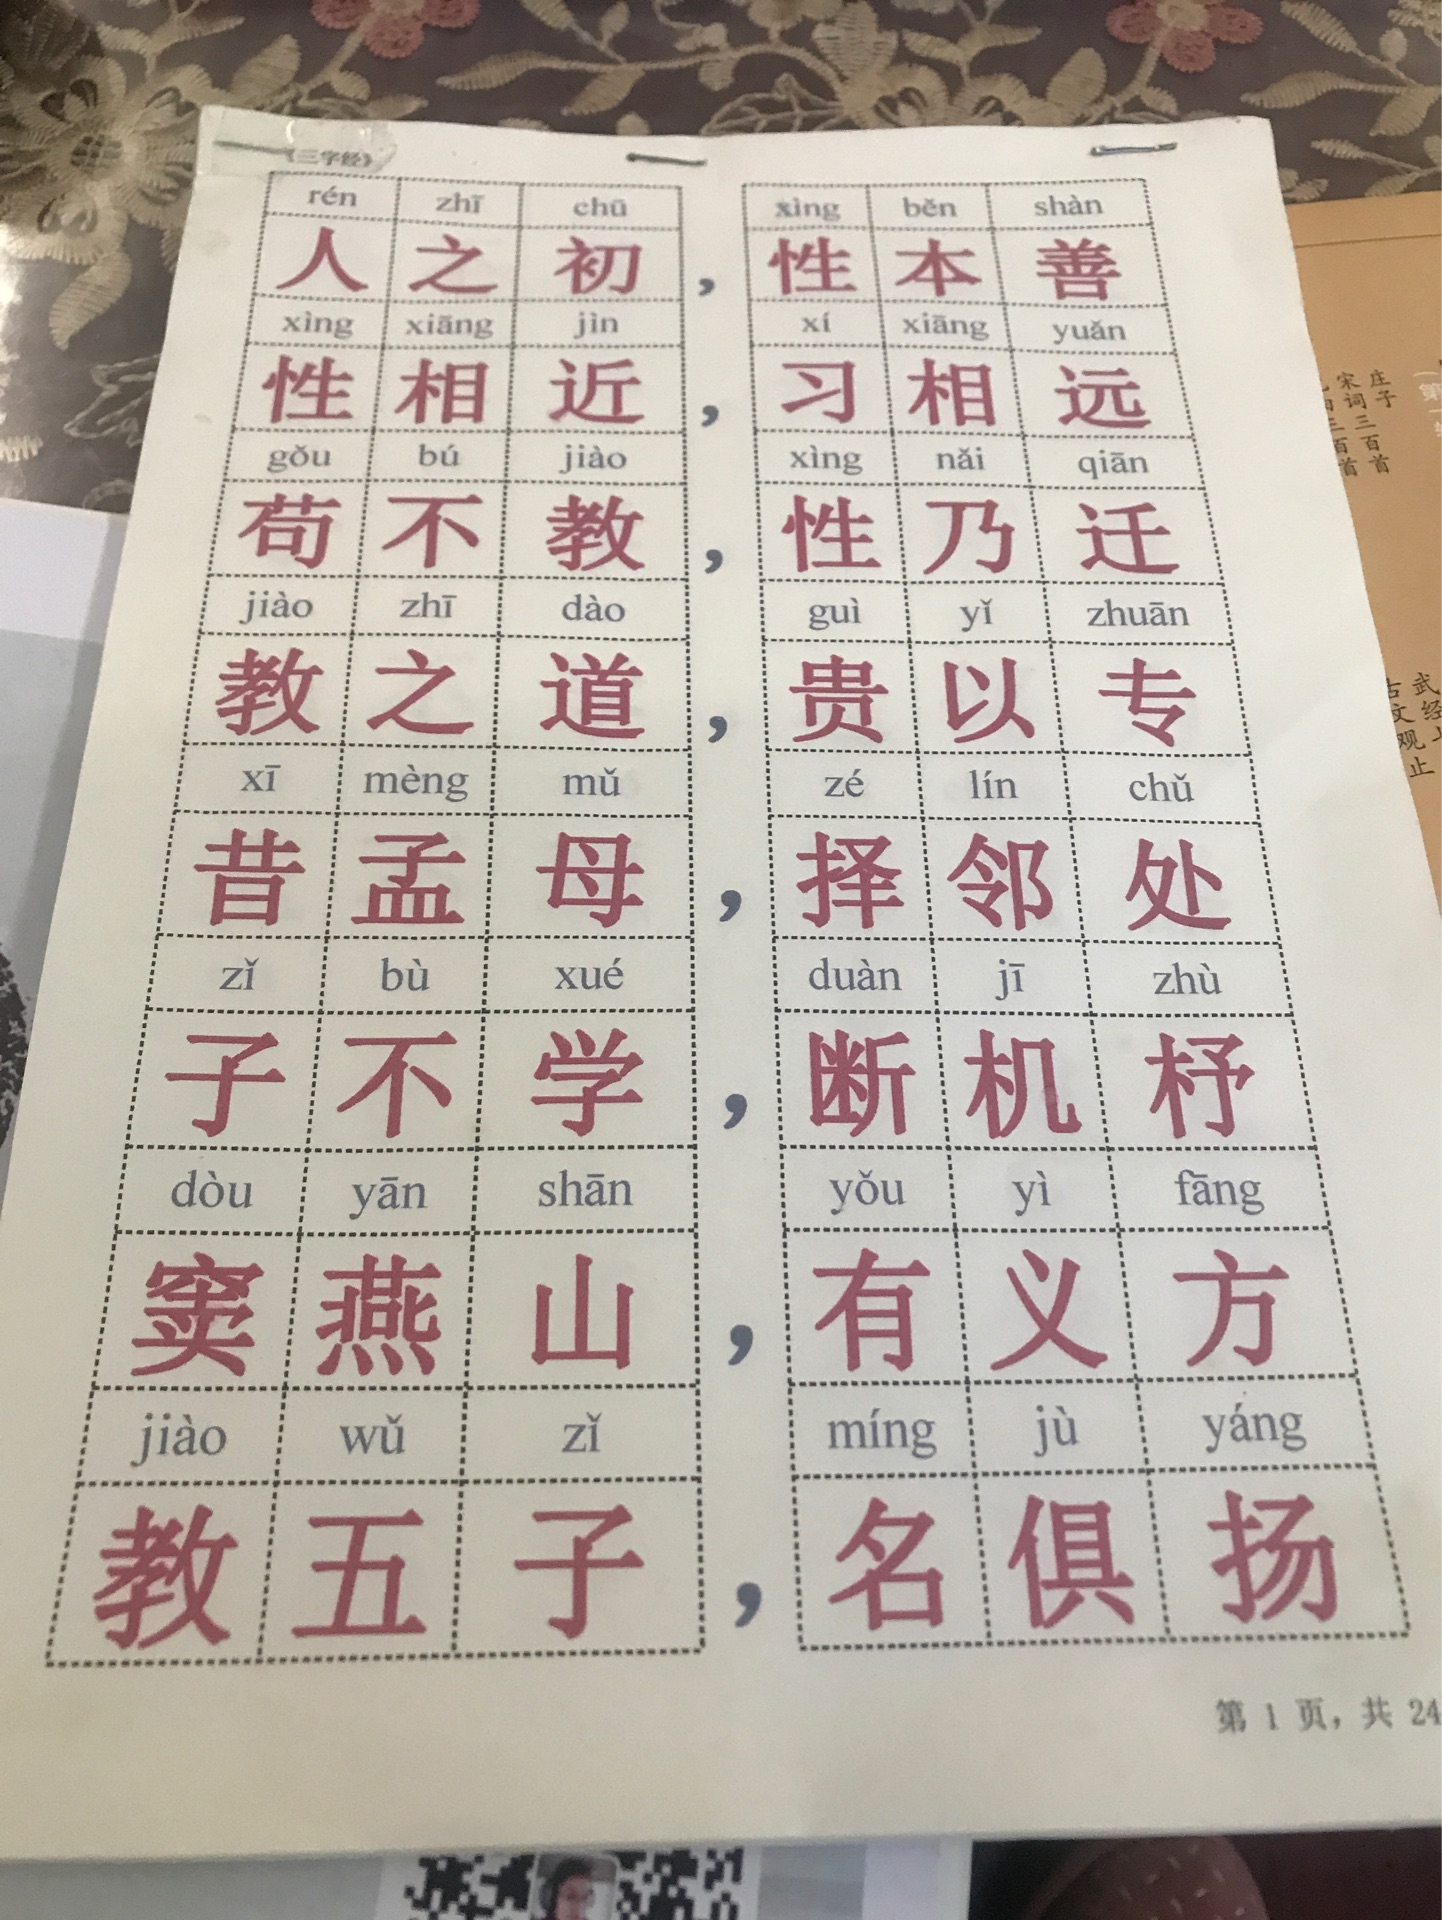 《三字经》
rén zhī chū xìng běn shàn
人之初，性本善
xìng xiāng jìn xí xiāng yuǎn
性相近，习相远
gǒu bú jiào xìng nǎi qiān
苟不教，性乃迁
jiào zhī dào guì yǐ zhuān
教之道，贵以专
xī mèng mǔ zé lín chǔ
昔孟母，择邻处
zǐ bù xué duàn jī zhù
子不学，断机杼
dòu yān shān yǒu yì fāng
窦燕山，有义方
jiào wǔ zǐ míng jù yáng
教五子，名俱扬
第 1 页，共 24
庄子
宋词三百首
第
武经
古文观止